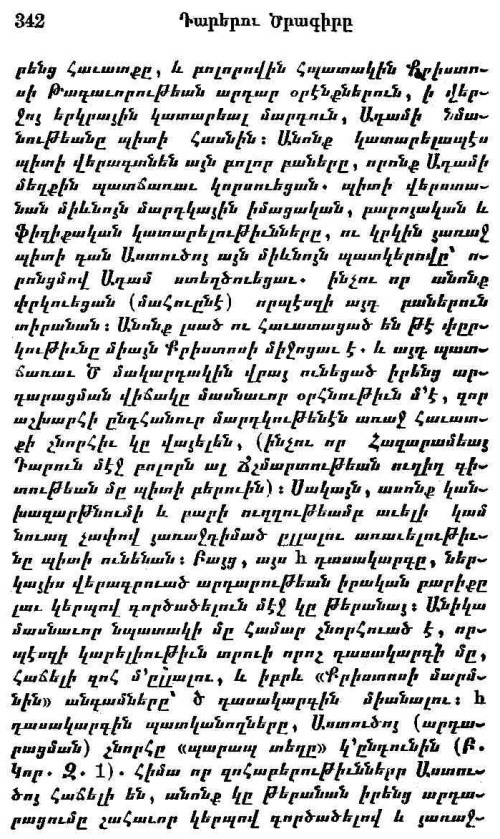 342 Դարերու Ծրագիրը
րենց հաւատքը, և բոլորովին հպատակին Քրիստո-
սի Թագաւորութեան արդար օրէնքներուն, ի վեր-
ջոյ երկրային կատարեալ մարդուն, Ադամի նմա-
նութեանը պիտի հասնին: Անոնք կատարելապէս
պիտի վերագտնեն այն բոլոր բաները, որոնք Ադամի
մեղքին պատճառաւ կորսուեցան. պիտի վերստա-
նան միևնոյն մարդկային իմացական, բարոյական և
ֆիզիքական կատարելութիւնները, ու կրկին յառաջ
պիտի գան Աստուծոյ այն միևնոյն պատկերովը՝ ո-
րոնցմով Ադամ ստեղծուեցաւ. ինչու որ անոնք
փրկուեցան (մահուընէ) որպէսզի այդ բաներուն
տիրանան: Անոնք լսած ու հաւատացած են թէ փըր-
կութիւնը միայն Քրիստոսի միջոցաւ է. և այդ պատ-
ճառաւ Ծ մակարդակին վրայ ունեցած իրենց ար-
դարացման վիճակը մասնաւոր օրհնութիւն մ՚է, զոր
աշխարհի ընդհանուր մարդկութենէն առաջ հաւատ-
քի շնորհիւ կը վայելեն, (ինչու որ Հազարամեայ
Դարուն մէջ բոլորն ալ Ճշմարտութեան ուղիղ գի-
տութեան մը պիտի բերուին): Սակայն, ասոնք կան-
խազարթնումի և բարի ուղղութեամբ աւելի կամ
նուազ չափով յառաջդիմած ըլլալու առաւելութիւ-
նը պիտի ունենան: Բայց, այս հ դասակարգը, ներ-
կայիս վերագրուած արդարութեան իրական բարիքը
լաւ կերպով գործածելուն մէջ կը թերանայ: Անիկա
մասնաւոր նպատակի մը համար շնորհուած է, որ-
պէսզի կարելիութիւն տրուի որոշ դասակարգի մը,
հաճելի զոհ մ՚ըլլալու, և իբրև «Քրիստոսի մարմ-
նին» անդամները՝ ծ դասակարգին միանալու: հ
դասակարգին պատկանողները, Աստուծոյ (արդա-
րացման) շնորհը «պարապ տեղը» կ՚ընդունին (Բ.
Կոր. Զ. 1). հիմա որ զոհարերութիւններր Աստու-
ծոյ հաճելի են, անոնք կը թերանան իրենց արդա-
րացումը շահաւոր կերպով գործածելով և յառաջ-